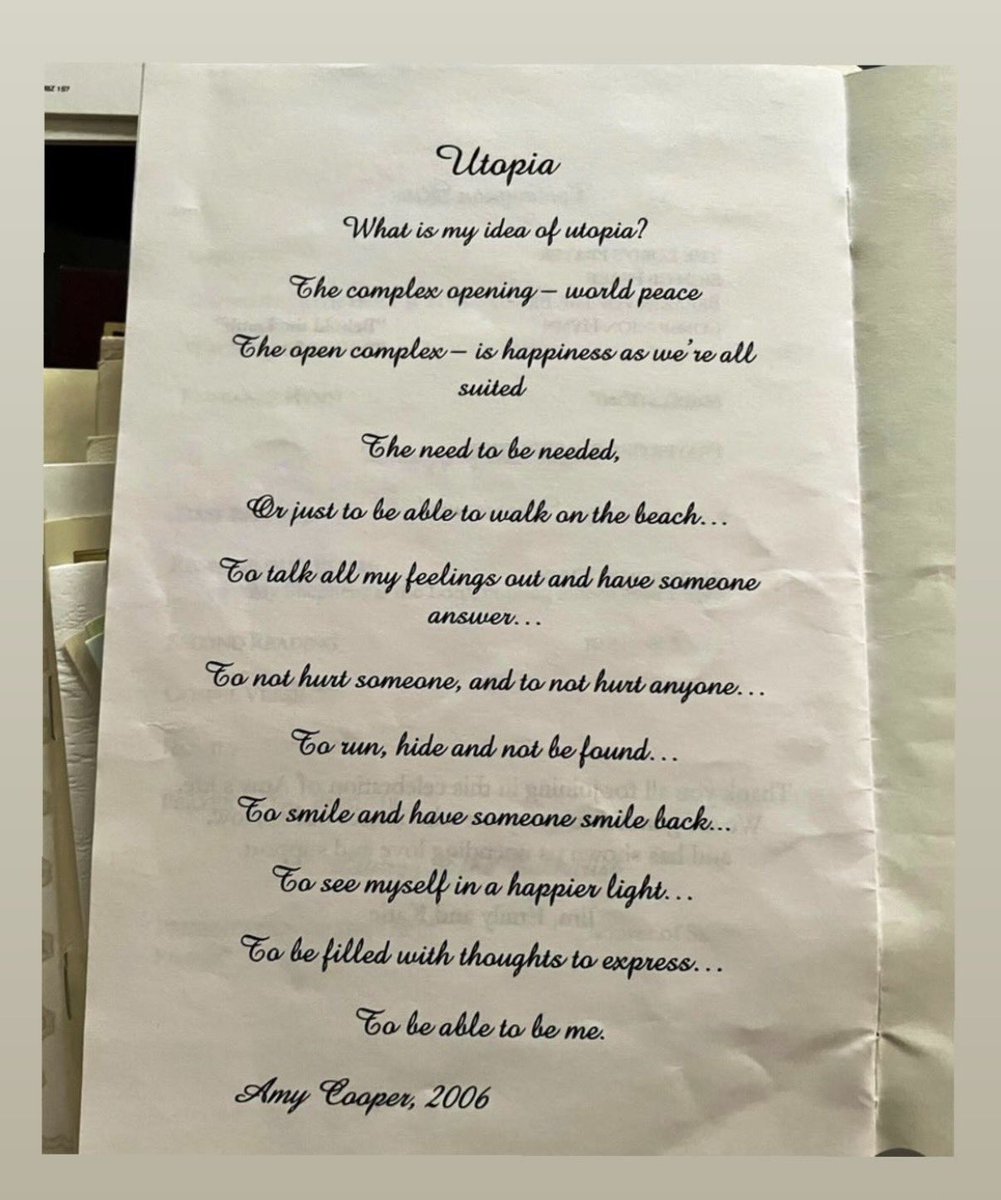 Utopia
What is my idea of utopia?
The complex opening – world peace
The open complex – is happiness as we're all
suited
The need to be needed,
Or just to be able to walk on the beach...
To talk all my feelings out and have someone
answer...
To not hurt someone, and to not hurt anyone...
To run, hide and not be found...
To smile and have someone smile back...
To see myself in a happier light...
To be filled with thoughts to express...
To be able to be me.
Amy Cooper, 2006